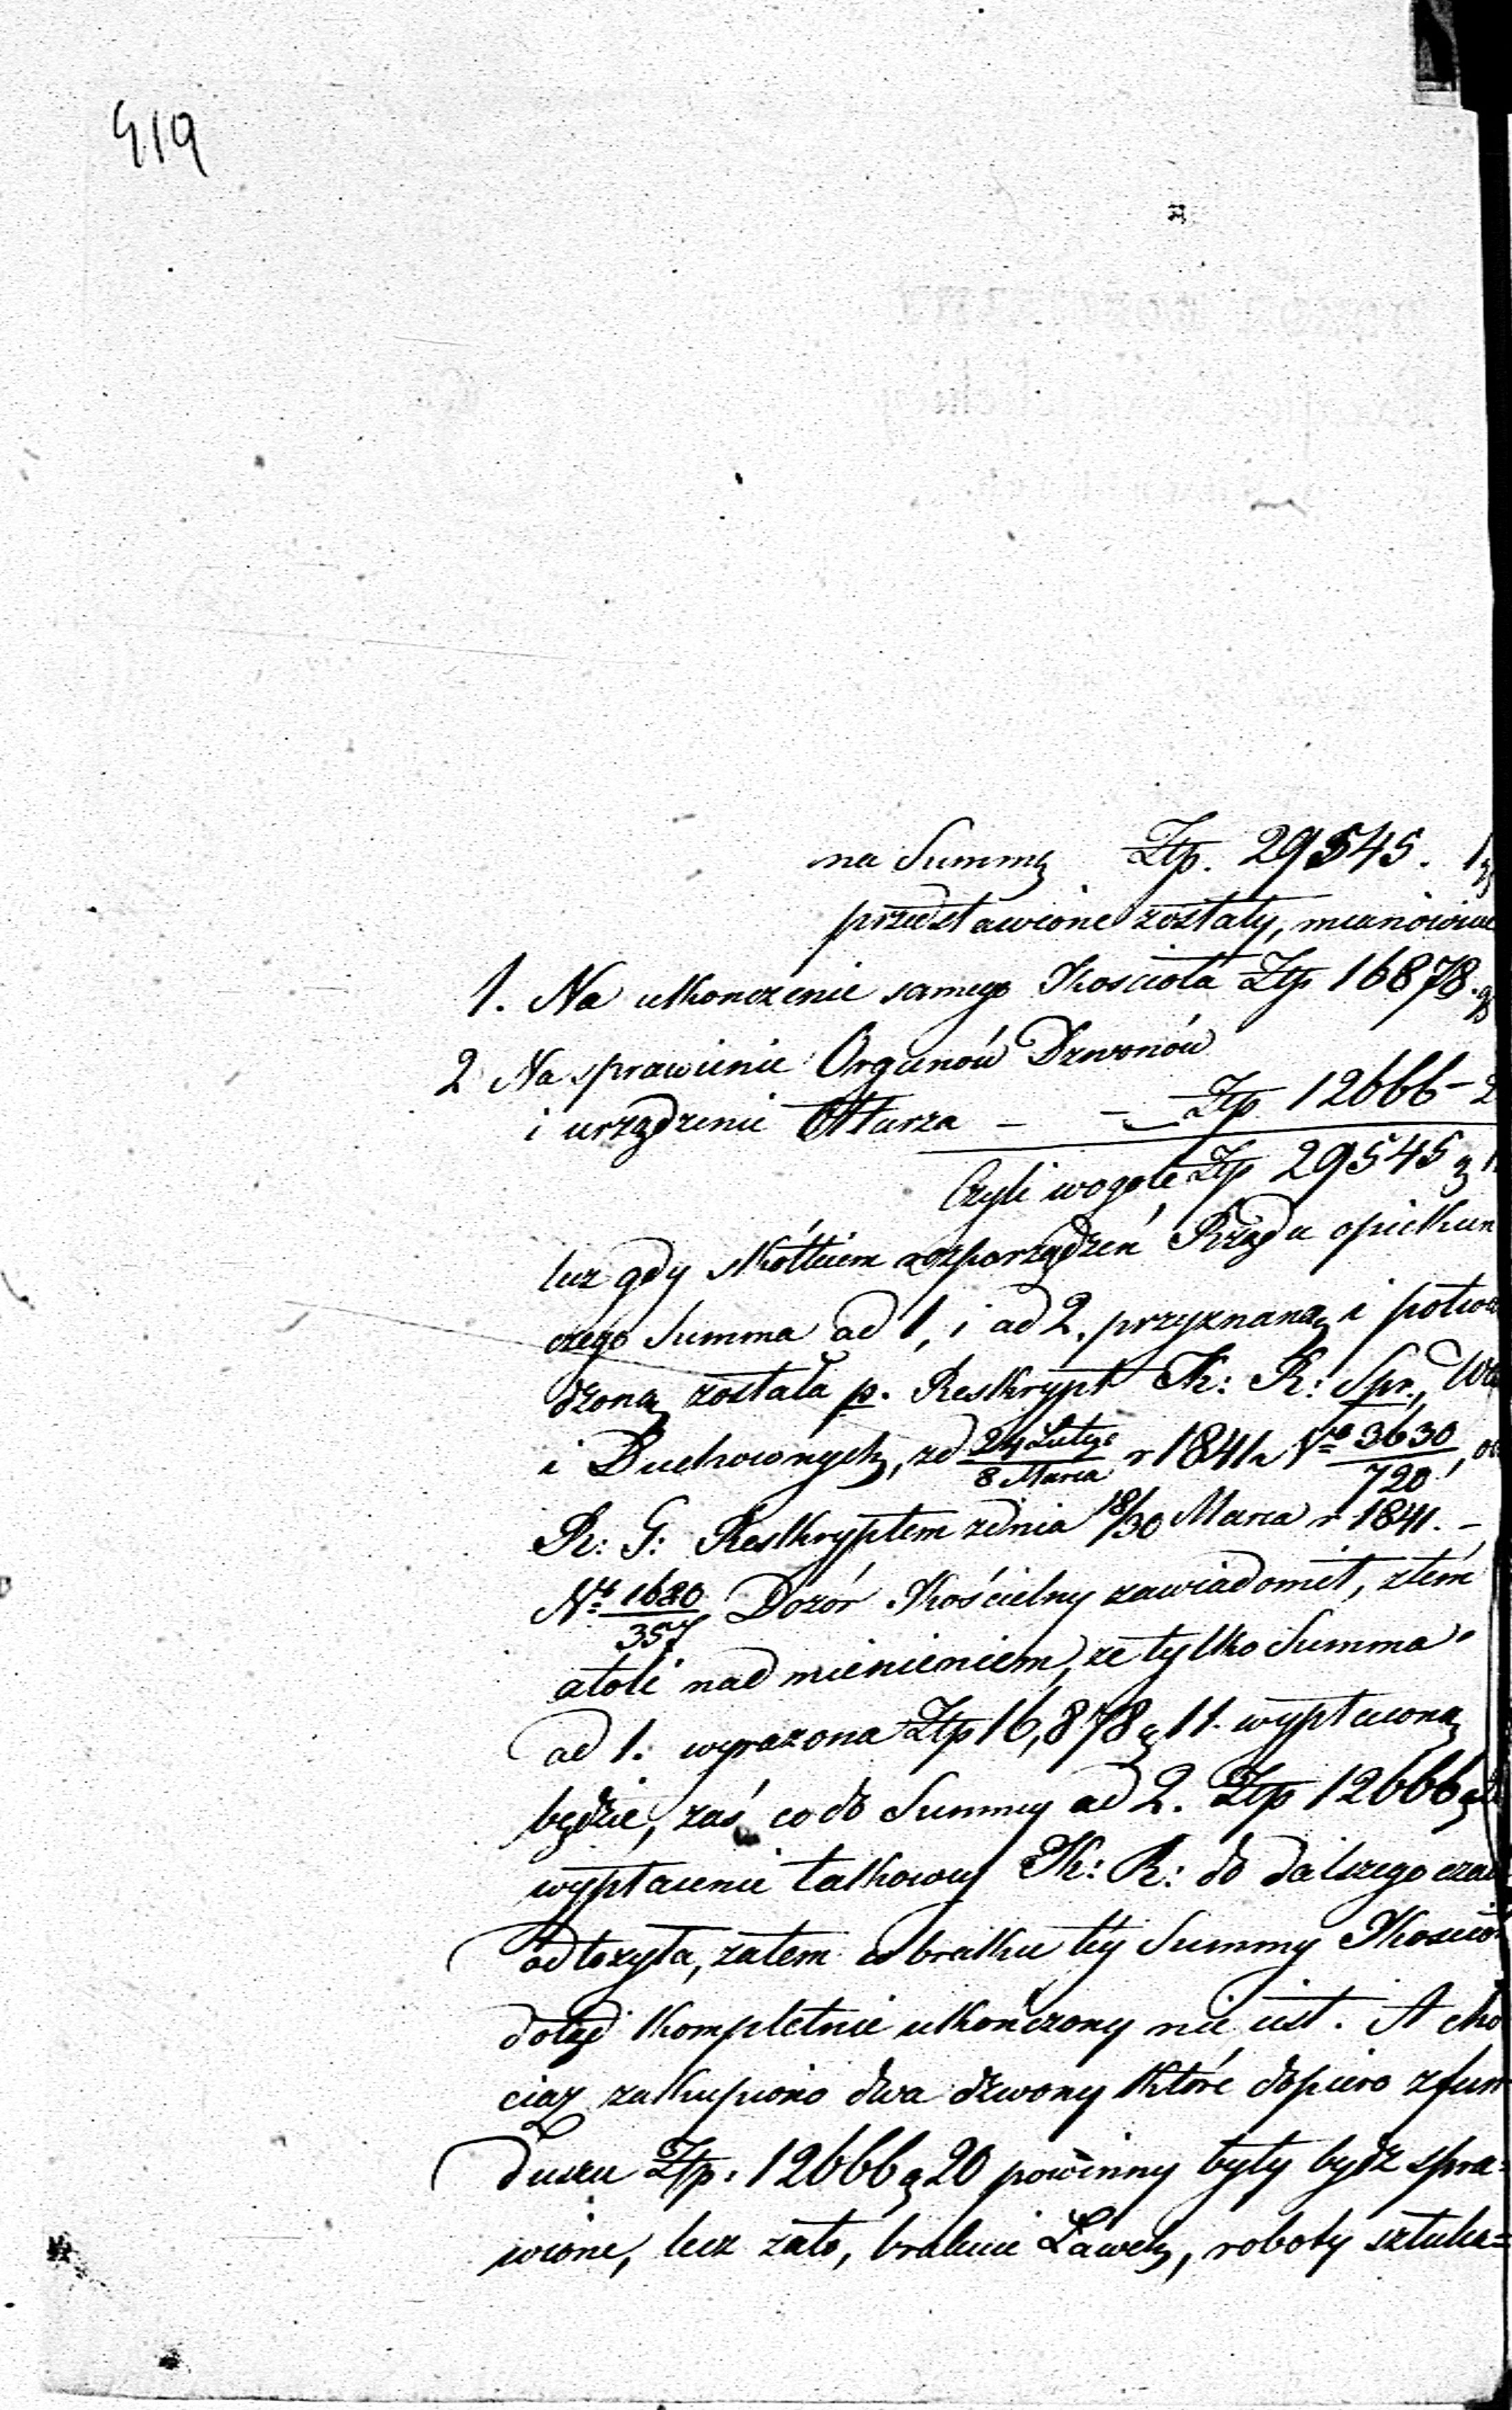 419
na Summę Złp. 29545. 1
przedstawione zostały, mianowicie
1. Na ukonczenie samego Kościoła Złp 16878. g
2 Na sprawienie Organów Dzwonów
i urządzenie Ołtarza – – Złp 12666 – 2
Czyli wogóle Złp 29545 g 1
lecz gdy skótkiem rozporządzeń Rządu opiekun
czego Summa ad 1, i ad 2. przyznaną i potwier
dzoną została p. Reskrypt K: R: Spr. We
i Duchownych, zd 24 Lutego/8 Marca r 1841 No 3630/720, o
R: G: Reskryptem zdnia 18/30 Marca r 1841. –
No 1680/357 Dozór Kościelny zawiadomił, ztém
atoli nadmienieniem, że tylko Summa
ad 1. wyrazona Złp 16,878 g 11. wypłaconą
będzie, zaś co do Summy ad 2. Złp 12666 g
wypłacenie takowey K: R: do dalszego czasu
odłożyła, zatem w braku téy Summy Kościoł
dotąd kompletnie ukończony nie iest. A cho
ciaż zakupiono dwa dzwony które dopiero zfun
duszu Złp. 12666 g 20 powinny były bydź spra=
wione, lecz zato, brakuie Ławek, roboty sztuka=